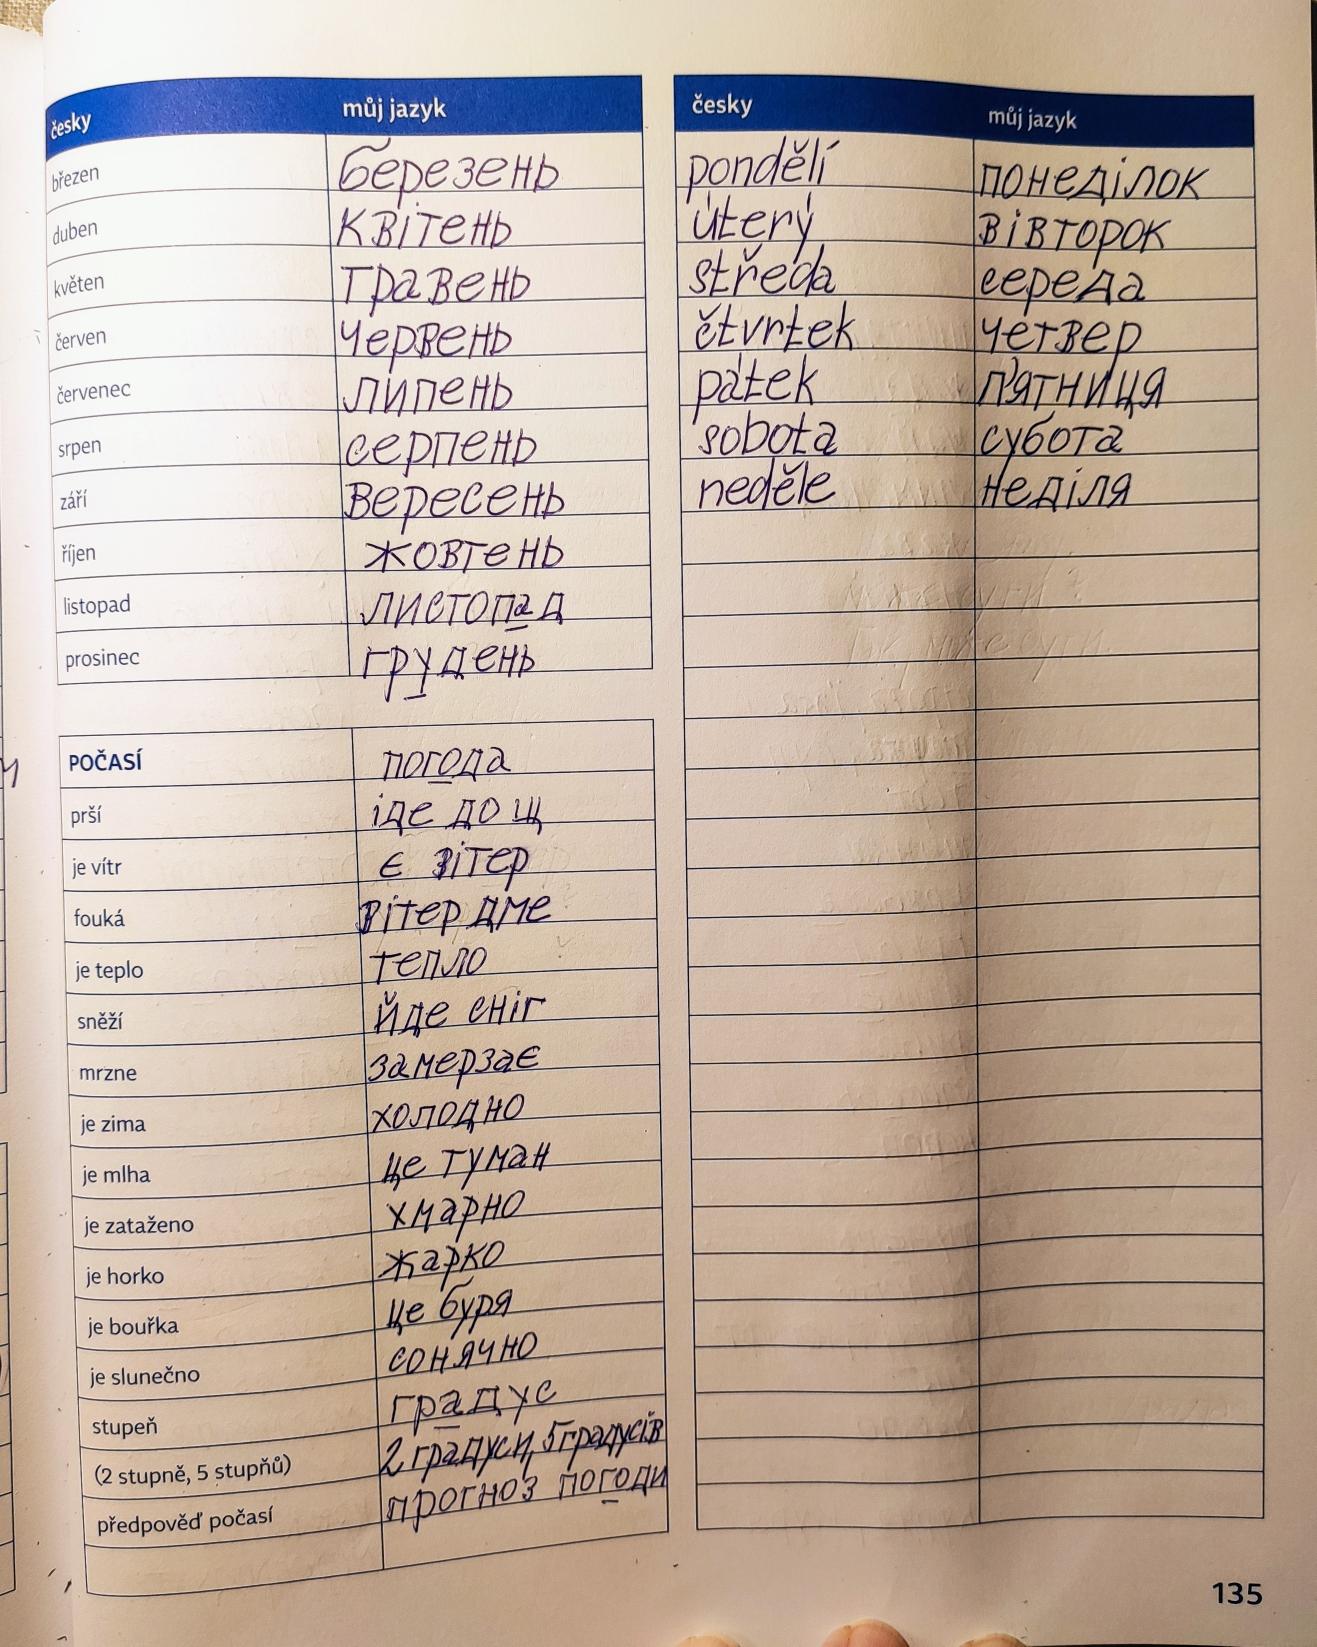 česky můj jazyk
březen березень
duben квітень
květen травень
červen червень
červenec липень
srpen серпень
září вересень
říjen жовтень
listopad листопад
prosinec грудень
POČASÍ погода
prší іде дощ
je vítr є вітер
fouká вітер дме
je teplo тепло
sněží йде сніг
mrzne замерзає
je zima холодно
je mlha це туман
je zataženo хмарно
je horko жарко
je bouřka це буря
je slunečno сонячно
stupeň градус
(2 stupně, 5 stupňů) 2 градуси, 5 градусів
předpověď počasí прогноз погоди
česky můj jazyk
pondělí понеділок
úterý вівторок
středa середа
čtvrtek четвер
pátek п'ятниця
sobota субота
neděle неділя
135